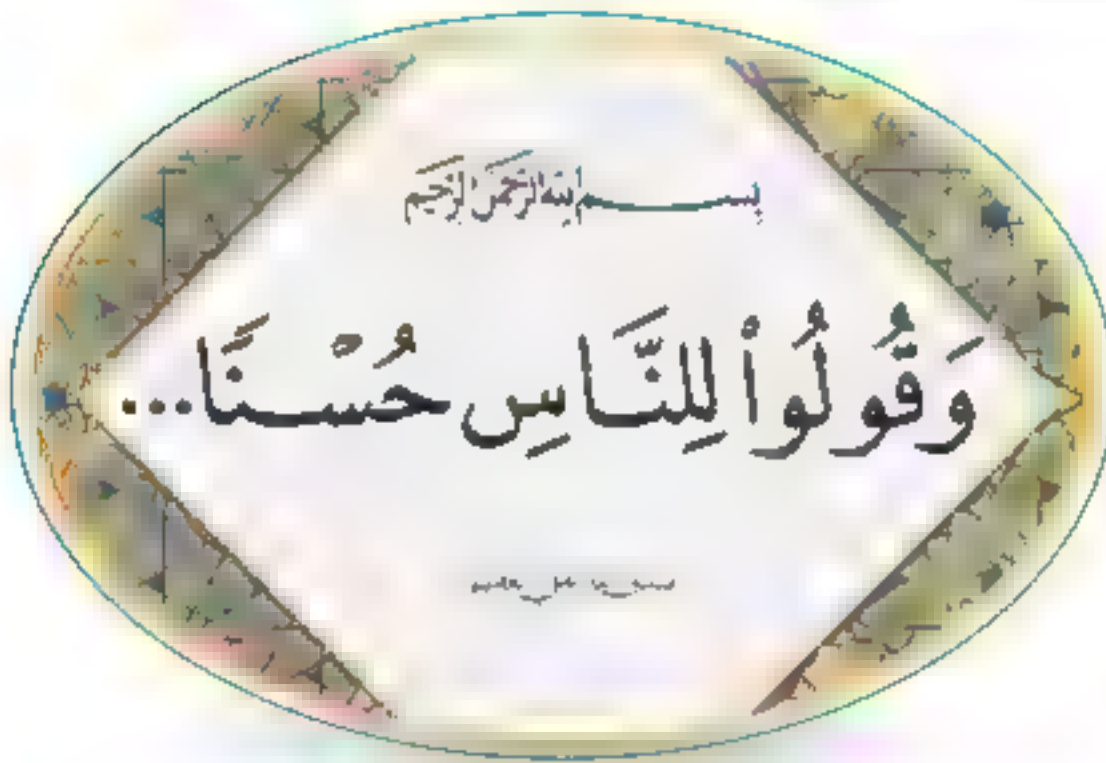 بسم الله الرحمن الرحيم
وَقُولُواْ لِلنَّاسِ حُسْنًا...